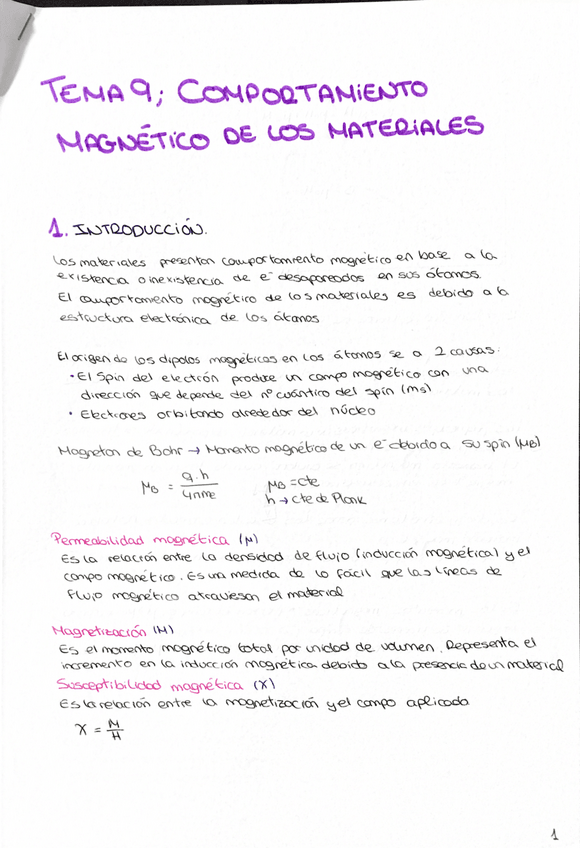 TEMA 9; COMPORTAMIENTO
MAGNÉTICO DE LOS MATERIALES
1. INTRODUCCIÓN.
Los materiales presentan comportamiento magnético en base a la
existencia o inexistencia de e⁻ desapareados en sus átomos.
El comportamento magnético de los materiales es debido a la
estructura electrónica de los átomos
El origen de los dipolos magnéticos en los átomos se a 2 causas:
• El Spin del electrón produce un campo magnético con una
dirección que depende del nº cuántico del spin (ms)
• Electrones orbitando alrededor del núcleo
Magneton de Bohr → Momento magnético de un e⁻ debido a su spin (μB)
μB = q·h / 4πme   μB = cte
h → cte de Plank
Permeabilidad magnética (μ)
Es la relación entre la densidad de flujo (inducción magnética) y el
campo magnético. Es una medida de lo fácil que las líneas de
flujo magnético atraviesan el material
Magnetización (M)
Es el momento magnético total por unidad de volumen. Representa el
incremento en la inducción magnética debido a la presencia de un material
Susceptibilidad magnética (χ)
Es la relación entre la magnetización y el campo aplicado
χ = M / H
1